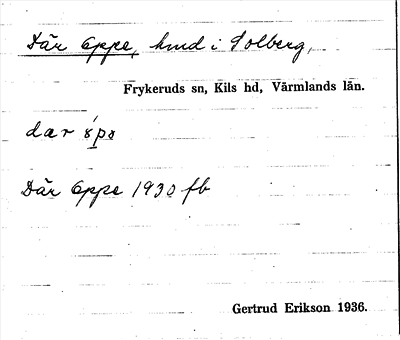 Där Oppe, hmd i Solberg,
Frykeruds sn, Kils hd, Värmlands län.
dær
Där Oppe 1930 fb
Gertrud Erikson 1936.